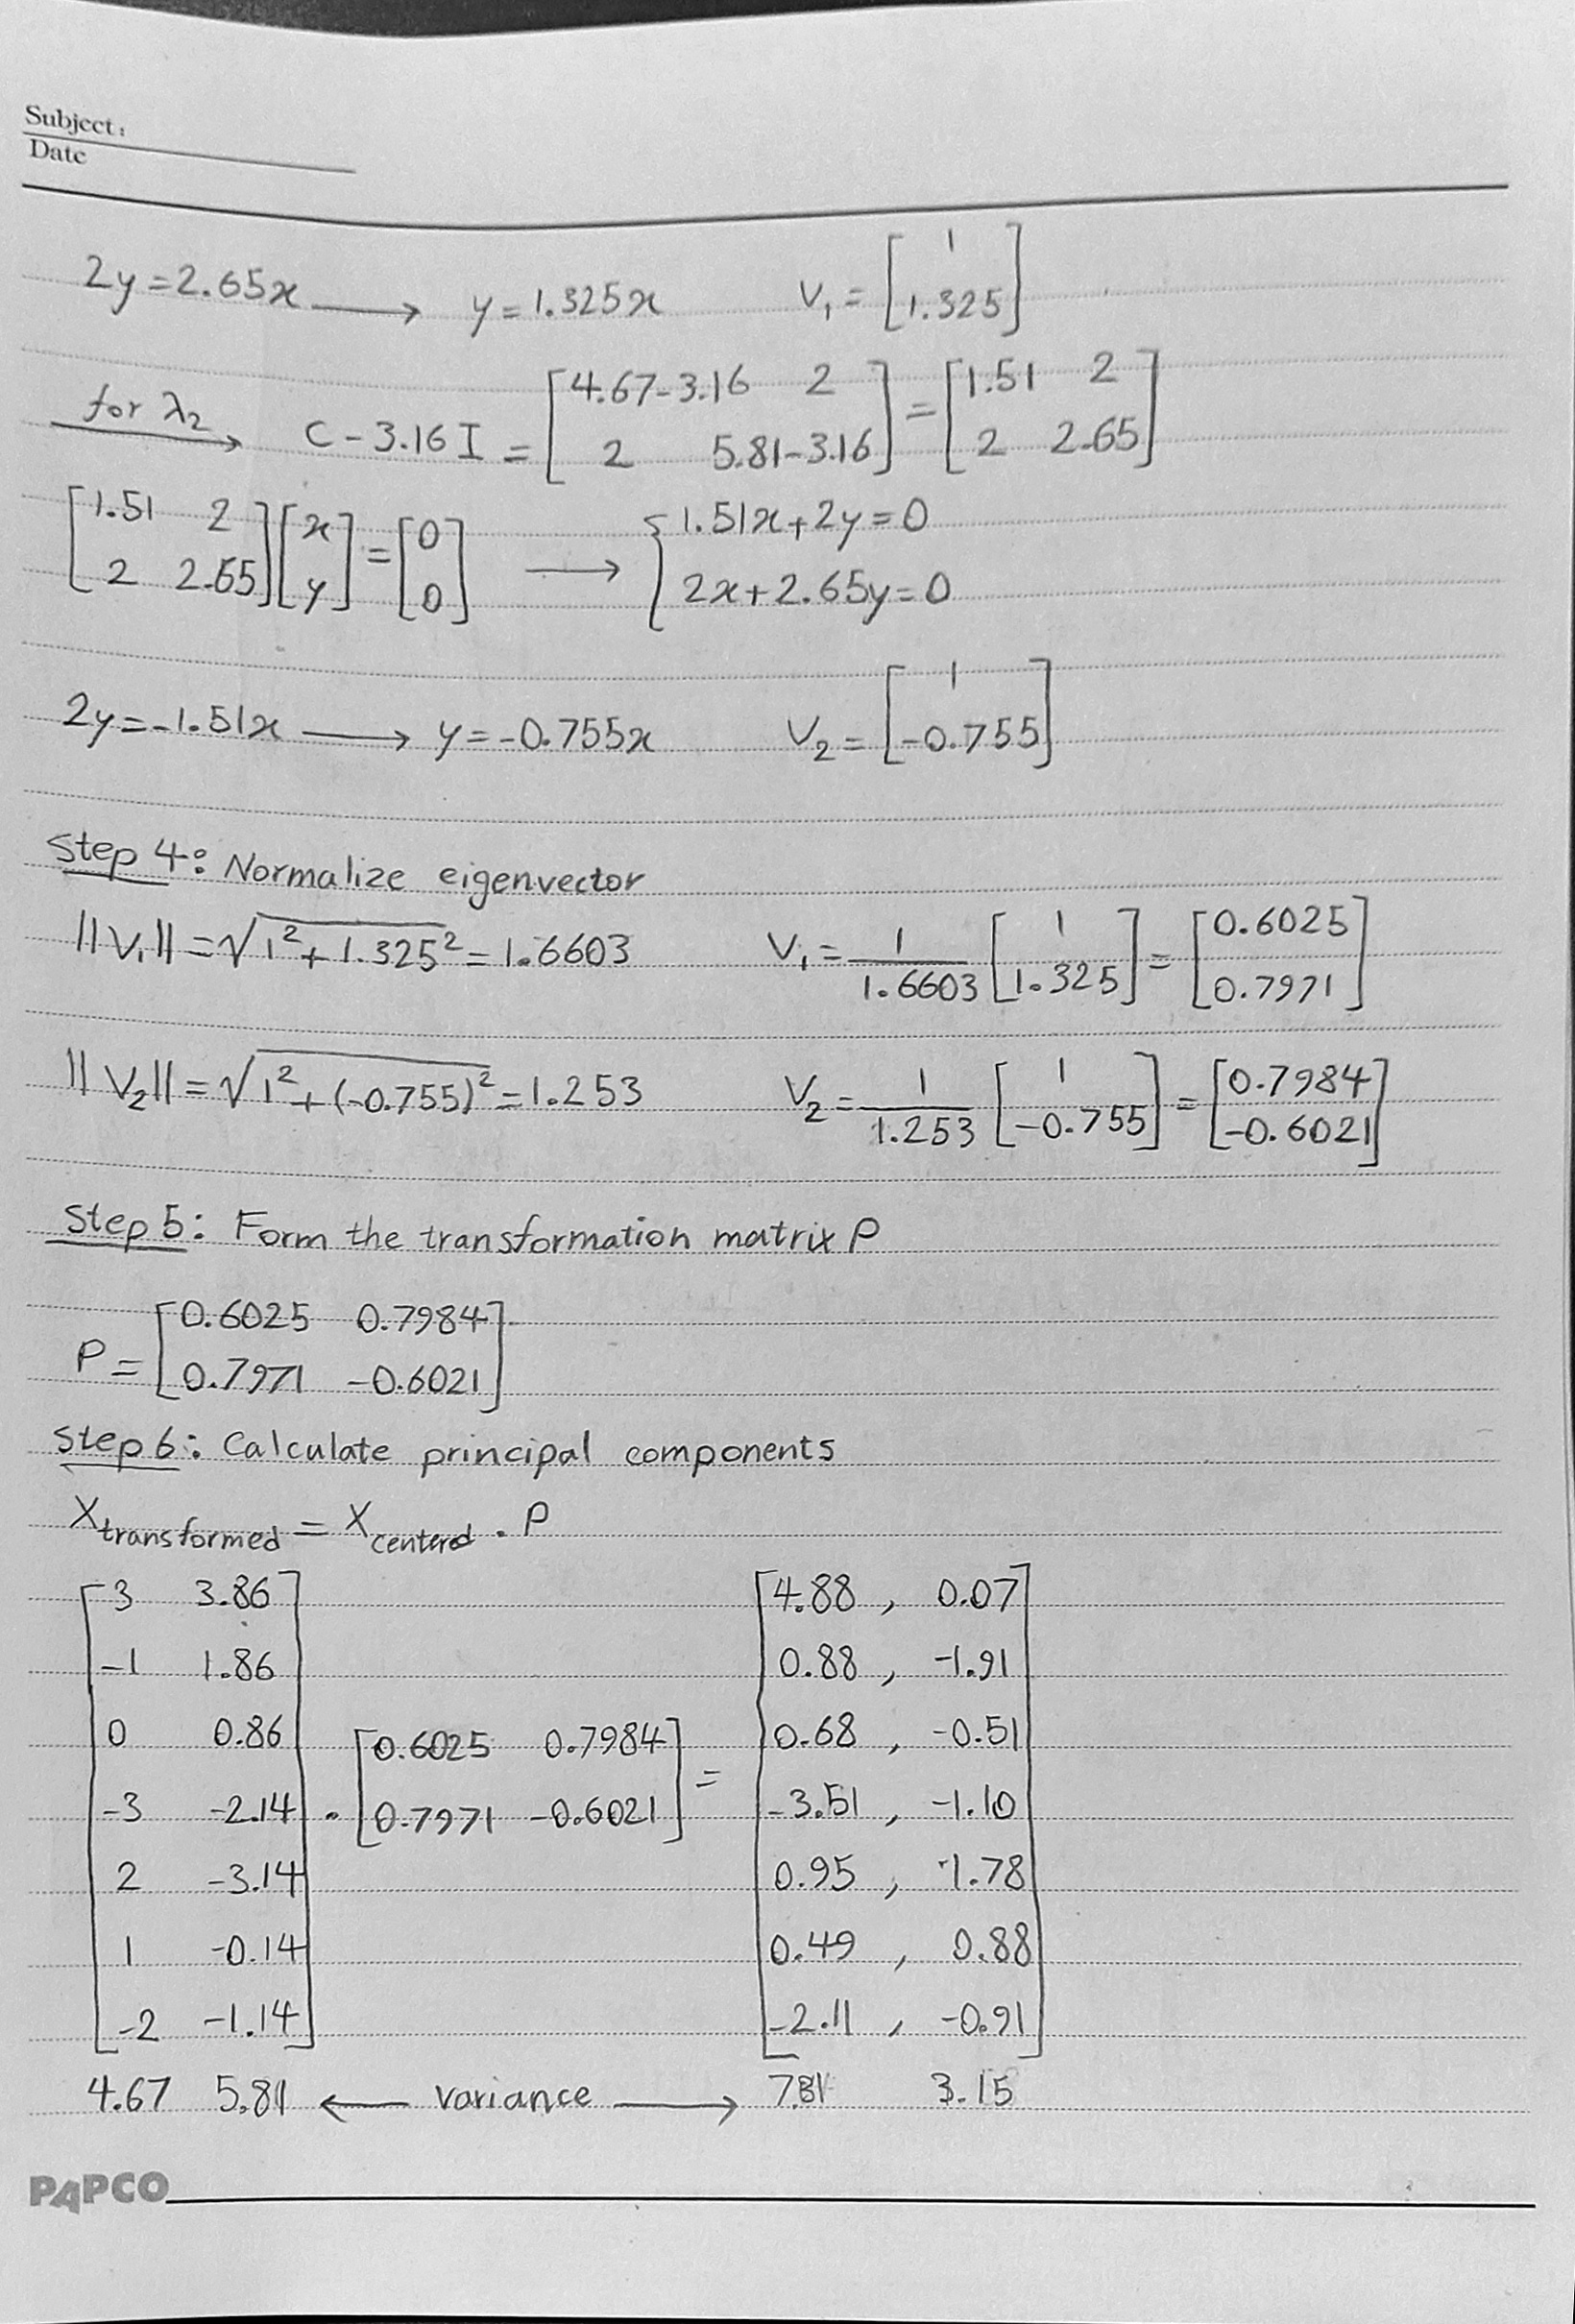 Subject:
Date
2y = 2.65x ⟶ y = 1.325x V₁ = [1; 1.325]
for λ₂ → C - 3.16 I = [4.67-3.16 2; 2 5.81-3.16] = [1.51 2; 2 2.65]
[1.51 2; 2 2.65] [x; y] = [0; 0] ⟶ { 1.51x + 2y = 0; 2x + 2.65y = 0
2y = -1.51x ⟶ y = -0.755x V₂ = [1; -0.755]
Step 4: Normalize eigenvector
||V₁|| = √(1² + 1.325²) = 1.6603 V₁ = 1/1.6603 [1; 1.325] = [0.6025; 0.7971]
||V₂|| = √(1² + (-0.755)²) = 1.253 V₂ = 1/1.253 [1; -0.755] = [0.7984; -0.6021]
Step 5: Form the transformation matrix P
P = [0.6025 0.7984; 0.7971 -0.6021]
Step 6: Calculate principal components
X transformed = X centered . P
3 3.86 4.88 , 0.07
-1 1.86 0.88 , -1.91
0 0.86 [0.6025 0.7984 0.68 , -0.51
-3 -2.14 . 0.7971 -0.6021] = -3.51 , -1.10
2 -3.14 0.95 , -1.78
1 -0.14 0.49 , 0.88
-2 -1.14 -2.11 , -0.91
4.67 5.81 ⟵ variance ⟶ 7.31 3.15
PAPCO